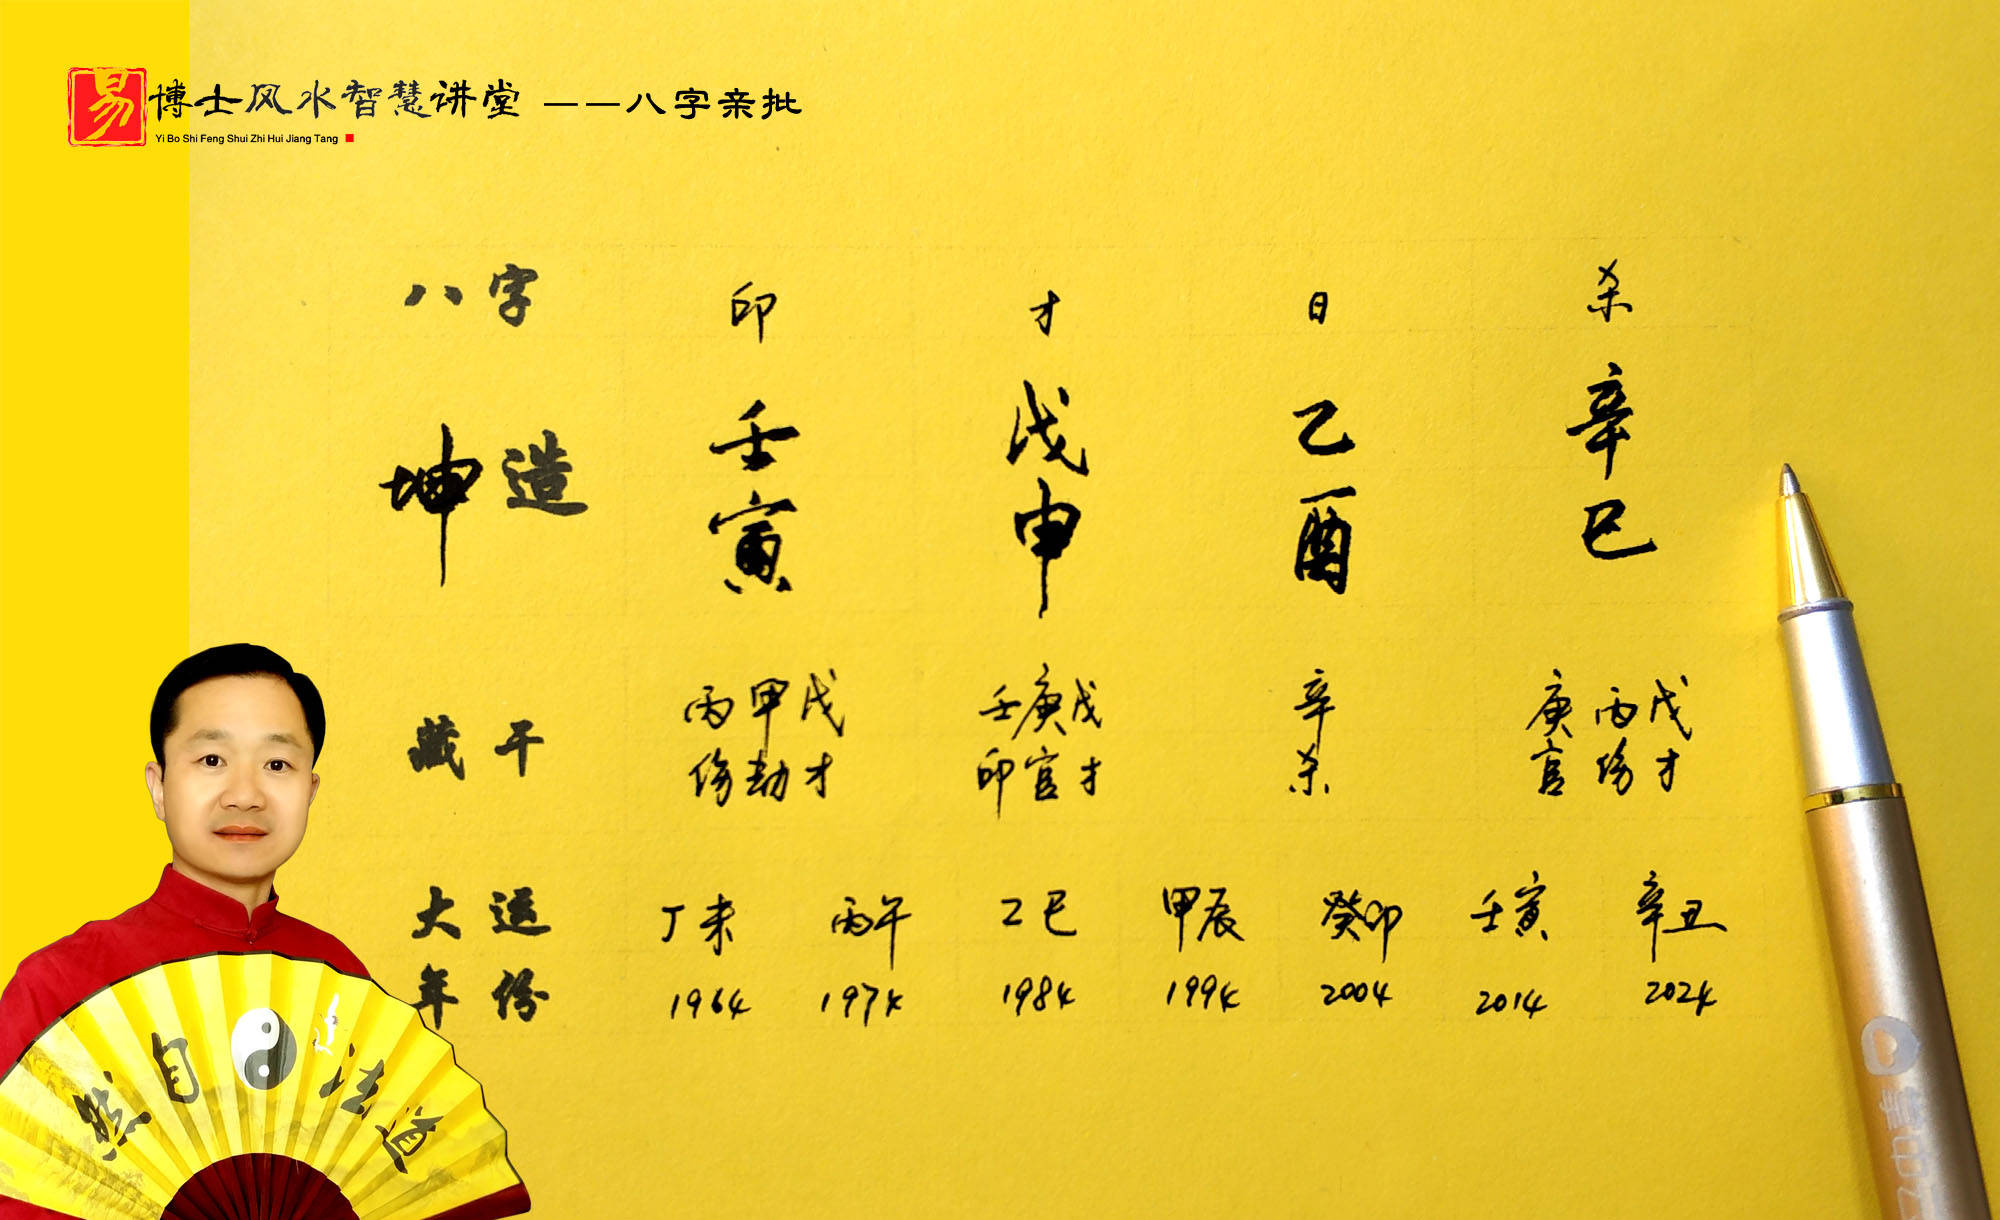 易博士风水智慧讲堂 ——八字亲批
Yi Bo Shi Feng Shui Zhi Hui Jiang Tang
八字 印 才 日 杀
坤造 壬寅 戊申 乙酉 辛巳
藏干 丙甲戊 壬庚戊 辛 庚丙戊
伤劫才 印官才 杀 官伤才
大运 丁未 丙午 乙巳 甲辰 癸卯 壬寅 辛丑
年份 1964 1974 1984 1994 2004 2014 2024
道法自然